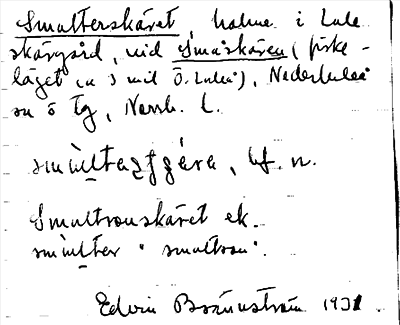 Smulterskäret, holme i Lule
skärgård, vid Småskären (fiske-
läget ca 3 mil Ö. Luleå), Nederluleå
sn ö tg, Norrb. l.
bf. n.
Smultronskäret ek.
smulter "smultron".
Edvin Brännström 1931